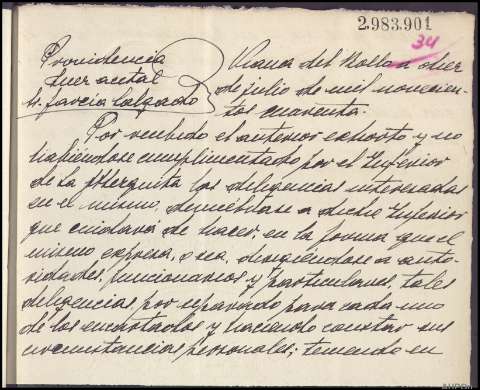 2.983.901
34
Providencia
Juez acctal
Sr. García Salgado
Viana del Bollo a diez
de julio de mil novecien-
tos cuarenta.
Por recibido el anterior exhorto y no
habiéndose cumplimentado por el Inferior
de la Mezquita las diligencias interesadas
en el mismo, devuélvase a dicho Inferior
que cuidará de hacer, en la forma que el
mismo expresa, o sea, dirigiéndose a auto-
ridades, funcionarios y particulares, tales
diligencias por separado para cada uno
de los encartados y haciendo constar sus
circunstancias personales; teniendo en